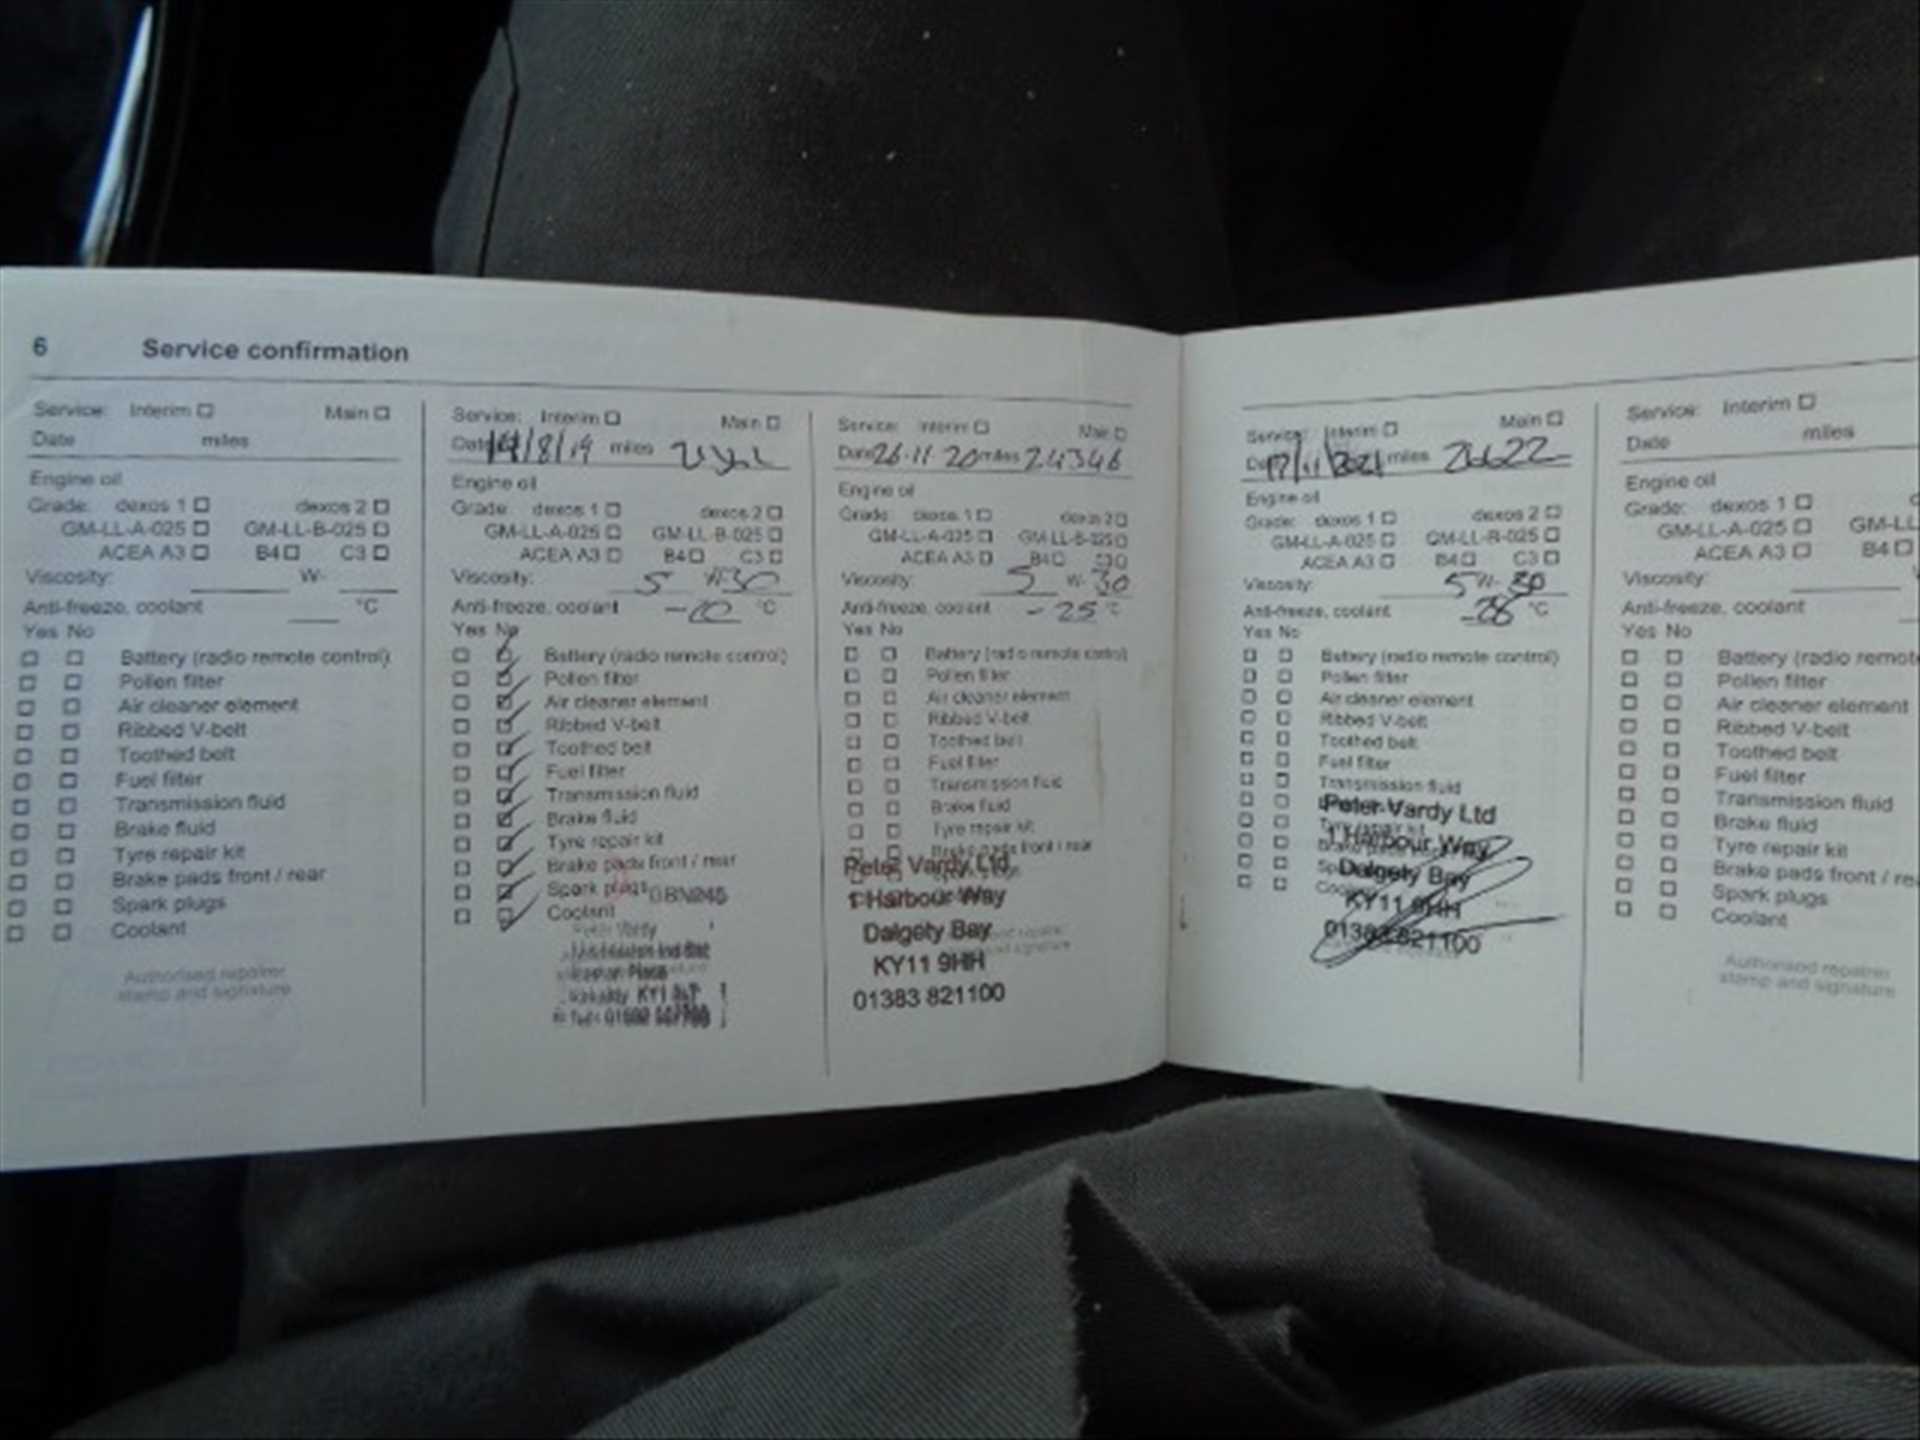 6 Service confirmation
Service: Interim Main
Date miles
Engine oil
Grade: dexos 1 dexos 2
GM-LL-A-025 GM-LL-B-025
ACEA A3 B4 C3
Viscosity: W-
Anti-freeze, coolant °C
Yes No
Battery (radio remote control)
Pollen filter
Air cleaner element
Ribbed V-belt
Toothed belt
Fuel filter
Transmission fluid
Brake fluid
Tyre repair kit
Brake pads front / rear
Spark plugs
Coolant
Authorised repairer
stamp and signature
Service: Interim Main
Date 14/8/19 miles
Engine oil
Grade: dexos 1 dexos 2
GM-LL-A-025 GM-LL-B-025
ACEA A3 B4 C3
Viscosity: 5 W-30
Anti-freeze, coolant °C
Yes No
Battery (radio remote control)
Pollen filter
Air cleaner element
Ribbed V-belt
Toothed belt
Fuel filter
Transmission fluid
Brake fluid
Tyre repair kit
Brake pads front / rear
Spark plugs
Coolant
Peter Vardy
Service: Interim Main
Date 26·11·20 miles 24346
Engine oil
Grade: dexos 1 dexos 2
GM-LL-A-025 GM-LL-B-025
ACEA A3 B4 C3
Viscosity: 5 W- 30
Anti-freeze, coolant -25 °C
Yes No
Battery (radio remote control)
Pollen filter
Air cleaner element
Ribbed V-belt
Toothed belt
Fuel filter
Transmission fluid
Brake fluid
Tyre repair kit
Brake pads front / rear
Peter Vardy Ltd
1 Harbour Way
Dalgety Bay
KY11 9HH
01383 821100
Service: Interim Main
Date 17/11/2021 miles 26622
Engine oil
Grade: dexos 1 dexos 2
GM-LL-A-025 GM-LL-B-025
ACEA A3 B4 C3
Viscosity: 5 W- 30
Anti-freeze, coolant °C
Yes No
Battery (radio remote control)
Pollen filter
Air cleaner element
Ribbed V-belt
Toothed belt
Fuel filter
Transmission fluid
Peter Vardy Ltd
1 Harbour Way
Dalgety Bay
KY11 9HH
01383 821100
Service: Interim
Date miles
Engine oil
Grade: dexos 1
GM-LL-A-025 GM-LL
ACEA A3 B4
Viscosity:
Anti-freeze, coolant
Yes No
Battery (radio remote
Pollen filter
Air cleaner element
Ribbed V-belt
Toothed belt
Fuel filter
Transmission fluid
Brake fluid
Tyre repair kit
Brake pads front / rea
Spark plugs
Coolant
Authorised repairer
stamp and signature